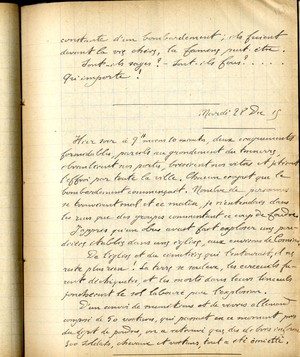 constante d'un bombardement; ils fuient
devant la vie chère, la famine peut-être.
Sont-ils sages? - Sont-ils fous? ....
Qu'importe!
Mardi 28 Déc 15
Hier soir à 9h moins 10 minutes, deux craquements
formidables, pareils au grondement du tonnerre
ébranlèrent nos portes, brisèrent nos vitres et jetèrent
l'effroi par toute la ville. Chacun croyait que le
bombardement commençait. Nombre de personnes
se trouvèrent mal et ce matin, je n'entendais dans
les rues que des groupes commentant ce coup de foudre.
D'après qu'on nous avait fait exploser une
dans une église, aux environs de
De l'église et du cimetière qui l'entourait, il ne
reste plus rien! La terre se souleva, les cercueils furent
déchiquetés et les morts dans leurs linceuls
le sol labouré par l'explosion.
D'un convoi de munitions et de vivres allemand
composé de 50 voitures, qui passait en ce moment près
du dépôt de poudre, on a retrouvé que des débris
300 soldats, chevaux et voitures, tout a été émietté.